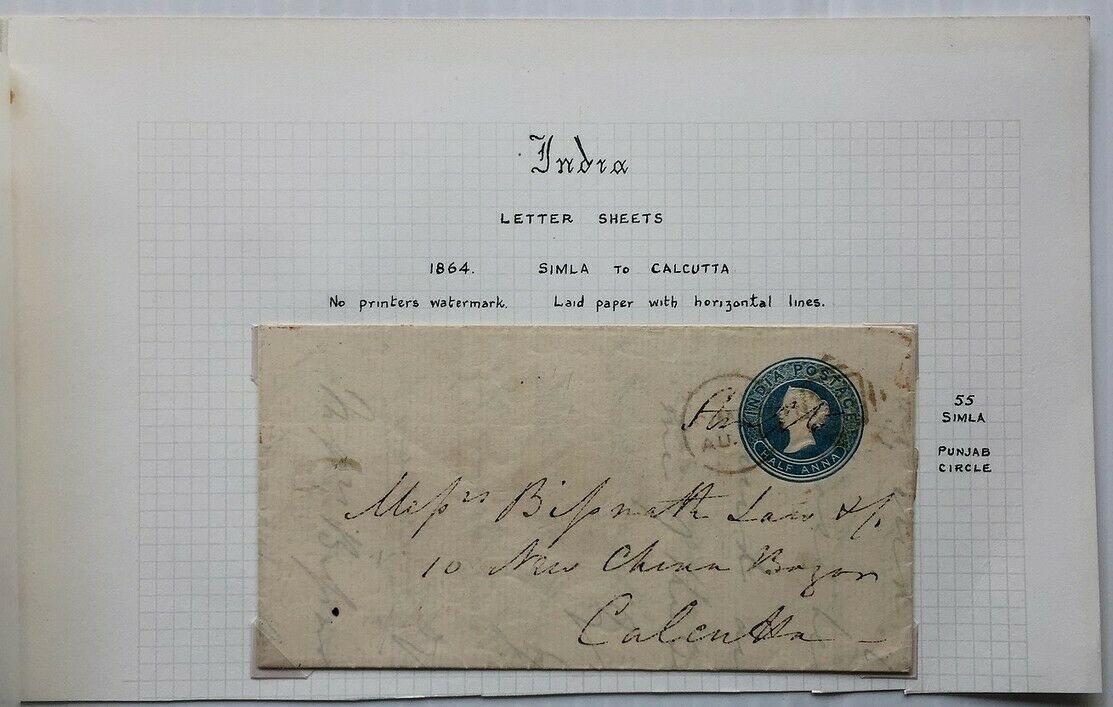 India
LETTER SHEETS
1864. SIMLA TO CALCUTTA
No printers watermark. Laid paper with horizontal lines.
INDIA POSTAGE
HALF ANNA
AU.
55
SIMLA
PUNJAB
CIRCLE
Messrs Bissnath Law &
10 New China Bazar
Calcutta